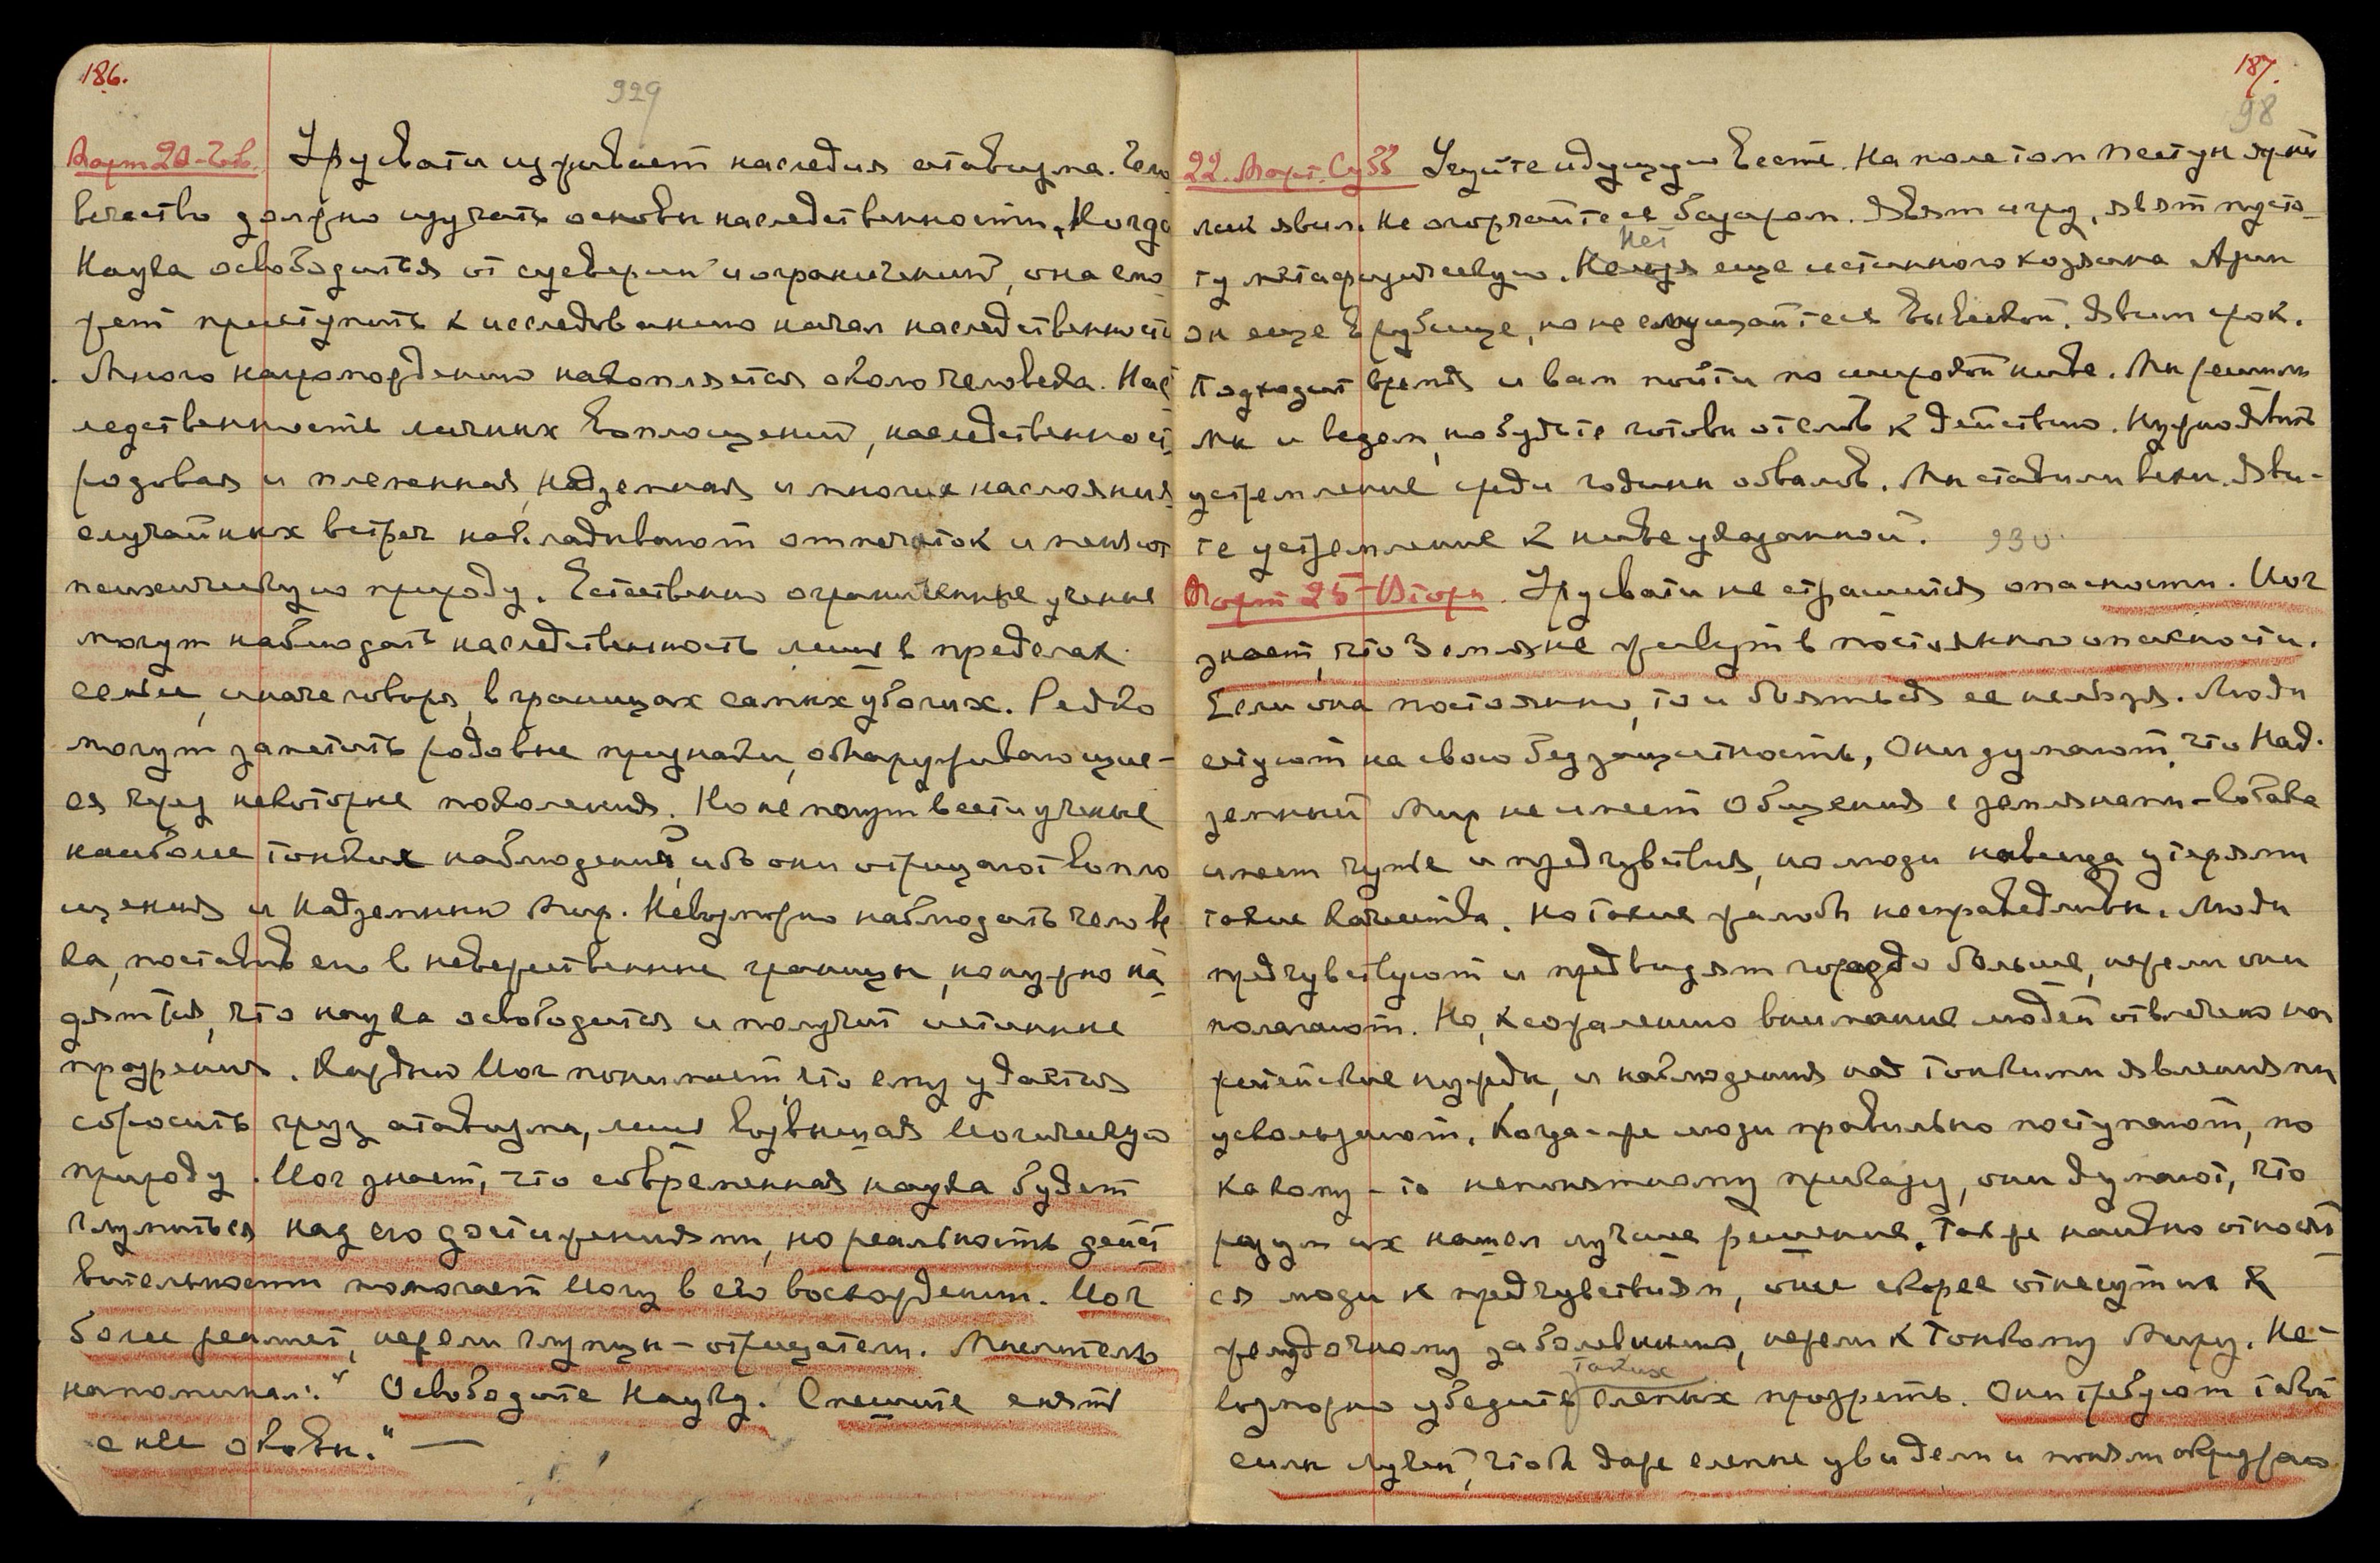 186.
929
Март 20-Четв. Урусвати изживает наследия атавизма. Чело
вечество должно изучать основы наследственности. Когда
Наука освободится от суеверий и ограничений, она смо
жет приступить к исследованию начал наследственности
Много нагромождению накопляется около человека. Нас
ледственность личных воплощений, наследственност
родовая и племенная, надземная и многие наслоения
случайных встреч накладывают отпечаток и меняют
психическую природу. Естественно ограниченные ученые
могут наблюдать наследственность лишь в пределах
семьи, иначе говоря, в границах самых убогих. Редко
могут заметить родовые признаки, обнаруживающие-
ся чрез некоторые поколения. Но не могут вести ученые
наиболее тонкие наблюдения, ибо они отрицают вопло
щения и Надземный Мир. Невозможно наблюдать челове
ка, поставив его в невежественные границы, но нужно на
деяться, что наука освободится и получит истинные
прозрения. Каждый Йог понимает, что ему удастся
сбросить груз атавизма, лишь возвышая Йогическую
природу. Йог знает, что современная наука будет
глумиться над его достижениями, но реальность дейст
вительности помогает Йогу в его восхождении. Йог
более реалист, нежели глупцы-отрицатели. Мыслитель
напоминал: "Освободите Науку. Спешите снять
с нее оковы." —
187.
98
22. Март. Субб Чуйте идущую весть. На полетом Пестун лучи
лик явил. Не огорчайтесь базаром. Явят игру, явят пусто-
ту метафизическую. Нет еще истинного хозяина Арки
он еще в рубище, но не смущайтесь вывеской. Явим срок.
Подходит время и вам пойти по широкой ниве. Мы решили
мы и ведем, но будьте готовы отсель к действию. Нужно явить
устремление среди годины обвалов. Мы ставили вехи. Яви-
те устремление к ниве указанной. 930
Март 25-Вторн. Урусвати не страшится опасности. Йог
знает, что Земляне живут в постоянной опасности.
Если она постоянна, то и бояться ее нельзя. Люди
сетуют на свою беззащитность, Они думают, что Над-
земный Мир не имеет Общения с землянами - собака
имеет чутье и предчувствия, но люди навсегда утеряли
такие качества. Но такие жалобы несправедливы. Люди
предчувствуют и предвидят гораздо больше, нежели они
полагают. Но, к сожалению внимание людей отвлечено на
житейские нужды, и наблюдения над тонкими явлениями
ускользают. Когда-же люди правильно поступают, по
какому-то непонятному приказу, они думают, что
разум их нашел лучшее решение. Также наивно относят
ся люди к предчувствиям, они скорее отнесут их к
желудочному заболеванию, нежели к Тонкому Миру. Не-
возможно убедить таких слепых прозреть. Они требуют такой
силы лучей, чтобы даже слепые увидели и поняли окружаю